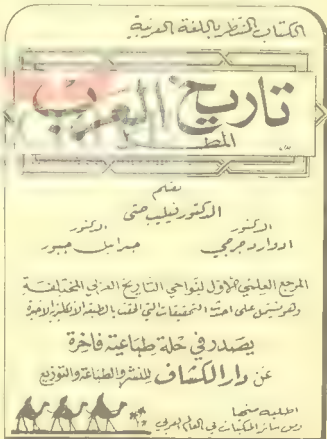 الكتاب المنتظر باللغة العربية
تاريخ العرب
المطول
بقلم
الدكتور فيليب حتي
الدكتور الدكتور
ادوارد جرجي جبرائيل جبور
المرجع العلمي الأول لنواحي التاريخ العربي المختلفة
وهو يشتمل على احدث التحقيقات التي الحقت بالطبعة الانكليزية الاخيرة
يصدر في حلة طباعية فاخرة
عن دار الكشاف للنشر والطباعة والتوزيع
اطلبه منها
ومن سائر المكتبات في العالم العربي